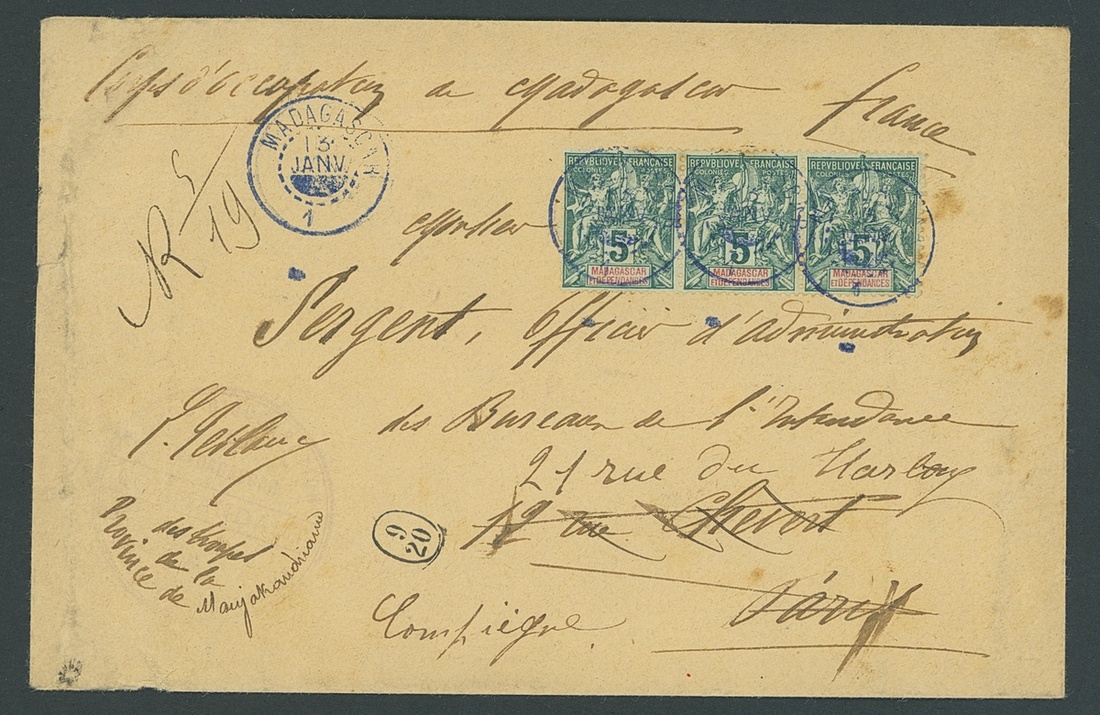 Corps d'occupation de Madagascar
France
MADAGASCAR
13
JANV
1
R 5/19
REPVBLIQVE FRANÇAISE
COLONIES POSTES
5
MADAGASCAR
ET DÉPENDANCES
REPVBLIQVE FRANÇAISE
COLONIES POSTES
5
MADAGASCAR
ET DÉPENDANCES
REPVBLIQVE FRANÇAISE
COLONIES POSTES
5
MADAGASCAR
ET DÉPENDANCES
Monsieur
Sergent, Officier d'administration
des Bureaux de l'Intendance
21 rue du Harlay
12 rue Chevert
Paris
Compiègne
9
20
des troupes
de la
Province de Manjakandriana